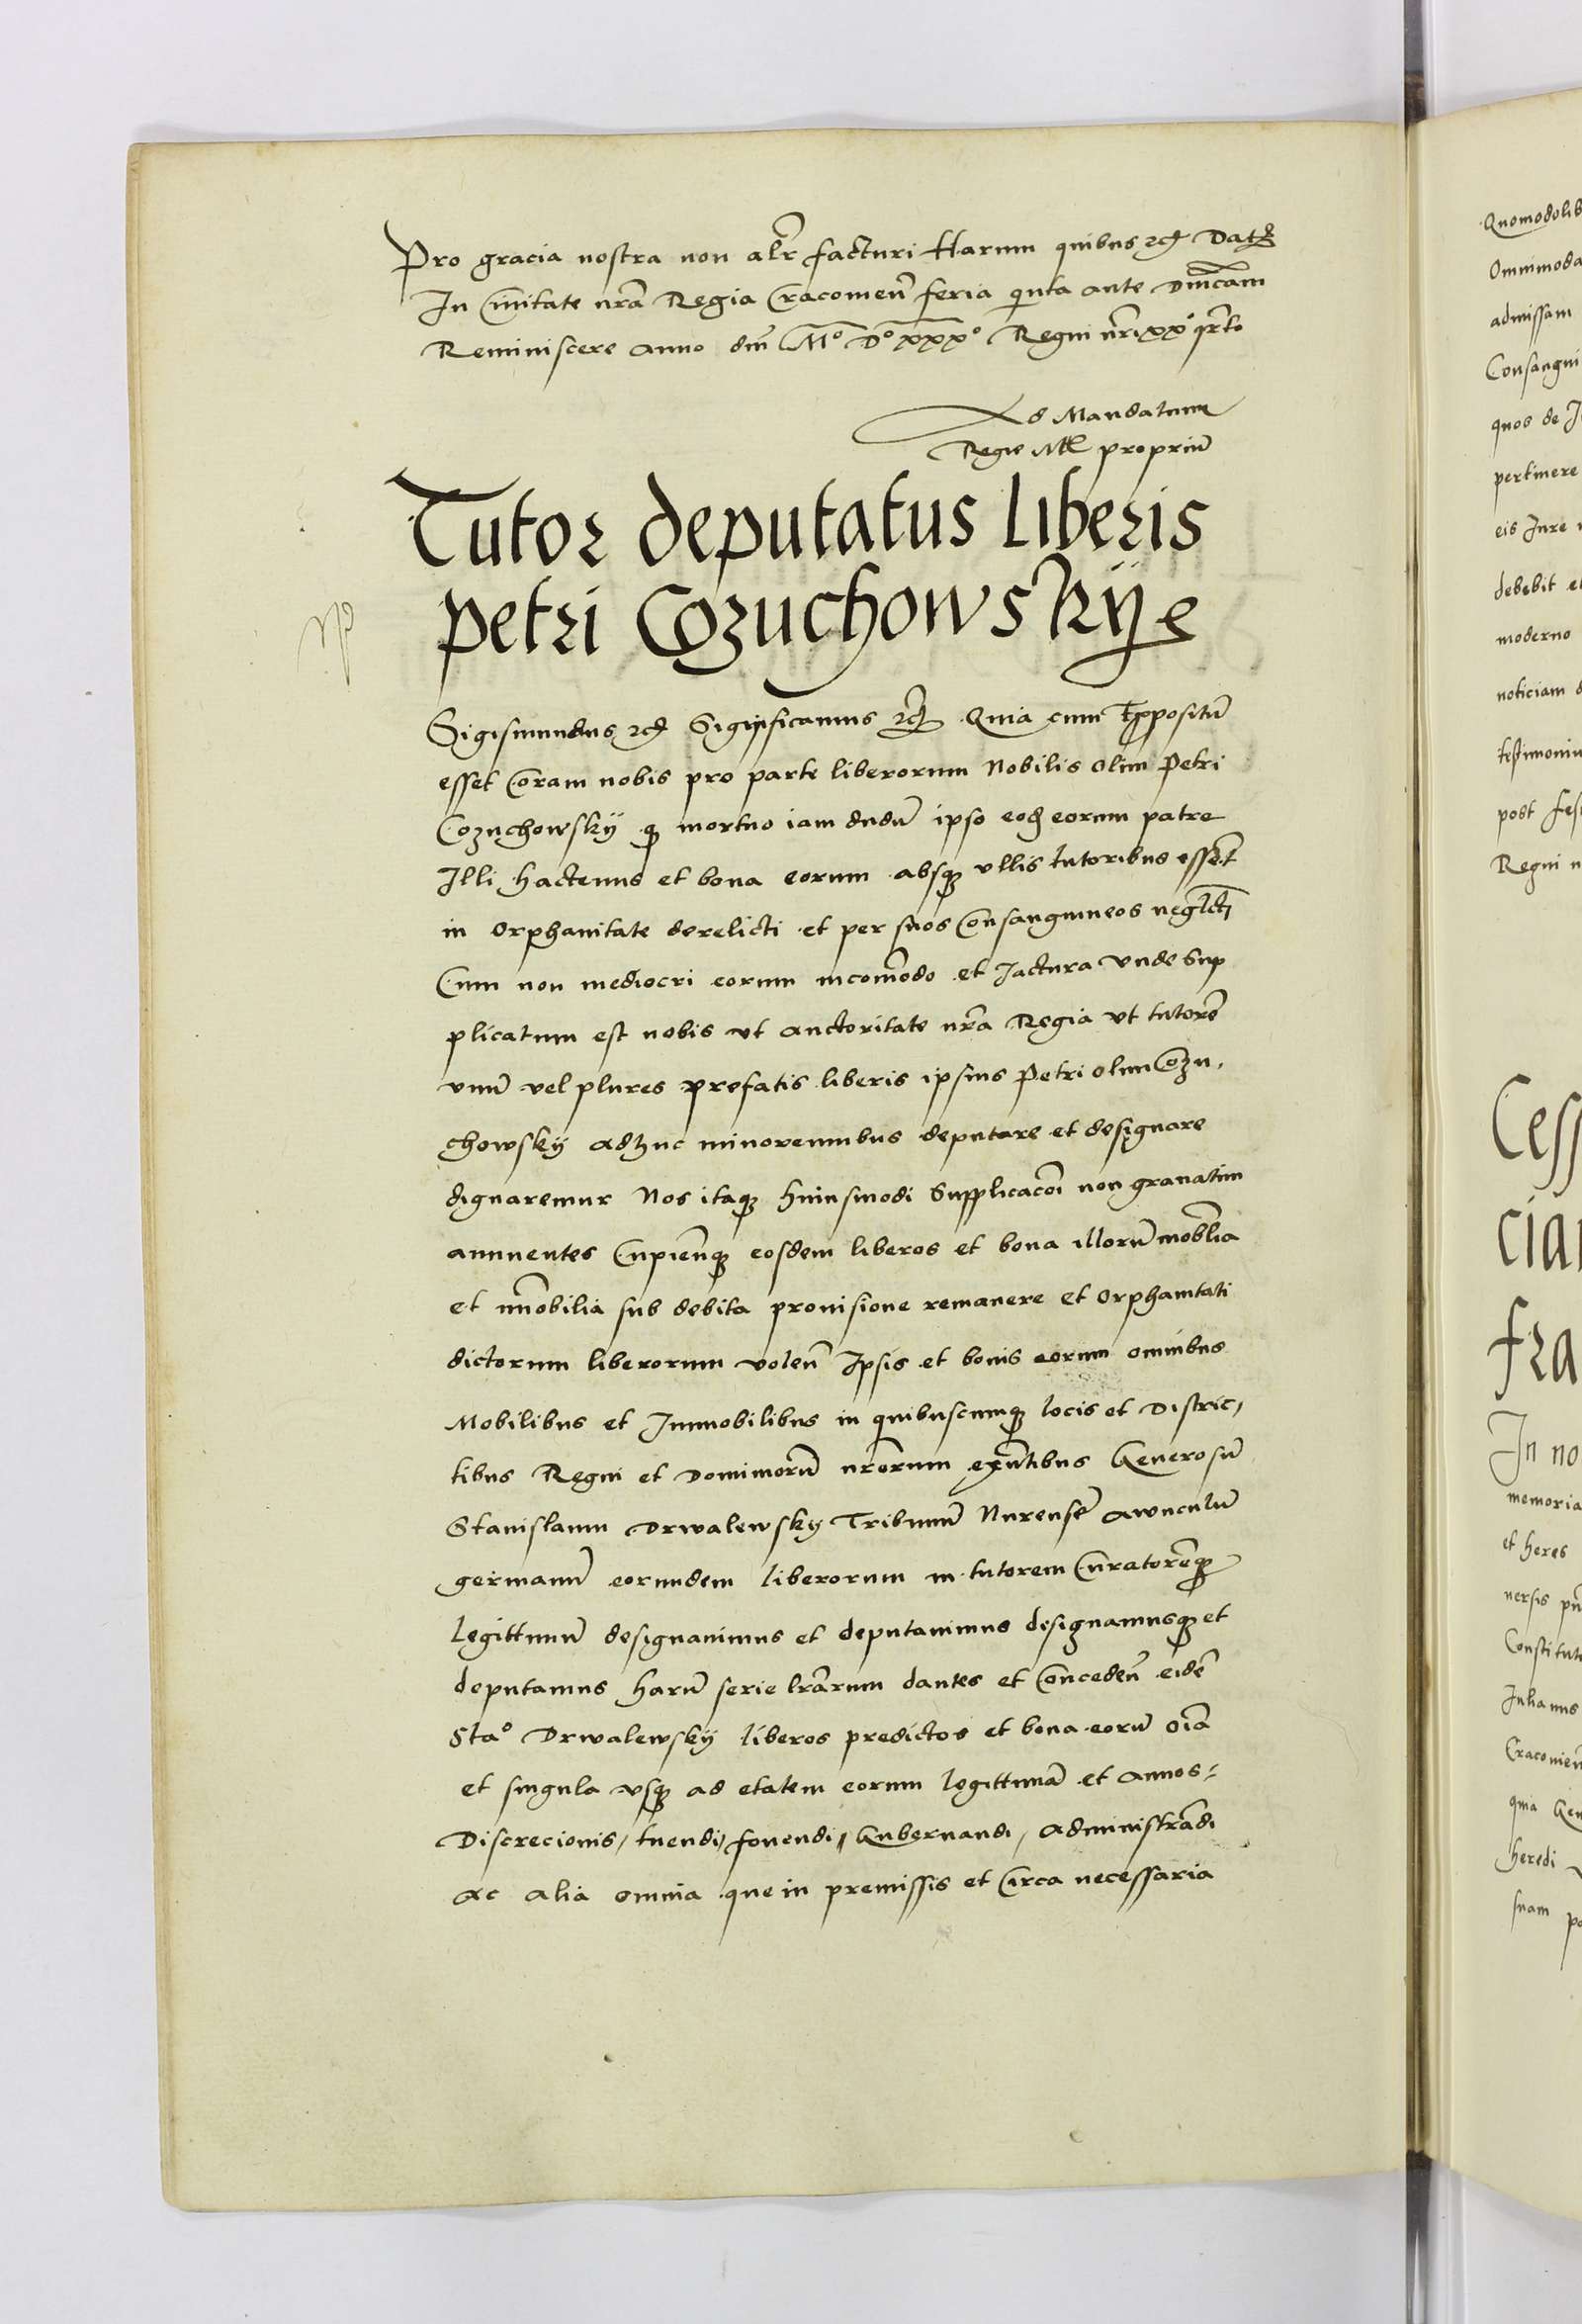 Pro gracia nostra non alr̃ facturi Harum quibus ꝛc̃ Dat̃
In Ciuitate nr̃a Regia Cracouien̄ feria quinta ante Dm̄cam
Reminiscere anno dn̄i Mº Dº xxxº Regni nr̃i xxº qr̃to
Ad Mandatum
Regie Mt̃ propriū
Tutor deputatus liberis
Petri Cozuchowskÿ
Sigismundus ꝛc̃ Significamus ꝛc̃ Quia cum Expositū
esset Coram nobis pro parte liberorum Nobilis olim Petri
Cozuchowskÿ ꝙ mortuo iam dudū ipso eod̃ eorum patre
Illi hactenus et bona eorum absqꝫ vllis tutoribus essent
in Orphanitate derelicti et per suos Consanguineos neglc̃ti
Cum non mediocri eorum incom̄odo et Jactura Vnde Sup
plicatum est nobis vt auctoritate nr̃a Regia vt tutorē
vnū vel plures prefatis liberis ipsius Petri olim Cozu,
chowskÿ adhuc minorennibus deputare et designare
dignaremur Nos itaqꝫ huiusmodi Supplicac̄oi non grauatim
annuentes Cupien̄qꝫ eosdem liberos et bona illorū mobl̃ia
et im̄obilia sub debita prouisione remanere et Orphanitati
dictorum liberorum volen̄ Ipsis et bonis eorum omnibus
Mobilibus et Immobilibus in quibuscumqꝫ locis et Distric,
tibus Regni et Dominiorū nr̃orum exñtibus Generosū
Stanislaum Drwalewskÿ Tribunū Nurensē awunculū
germanū eorundem liberorum in tutorem Curatorēqꝫ
Legittimū designauimus et deputauimus designamusqꝫ et
deputamus harū serie lr̃arum dantes et Conceden̄ eidē
Staº Drwalewskÿ liberos predictos et bona eorū oīa
et singula vsqꝫ ad etatem eorum legittimā et annos
Discrecionis, tuendi, fouendi, Gubernandi, administrādi
ac alia omnia que in premissis et Circa necessaria
Quomodolib
Omnimoda
admissam
Consangui
quos de J
pertinere
eis Jure
debebit et
moderno
noticiam
testimoniu
post fes
Regni n
Cess
cia
fra
In no
memoria
et heres
uersis pn̄
Constitut
Juhanus
Cracouien
quia Gen
heredi
suam po